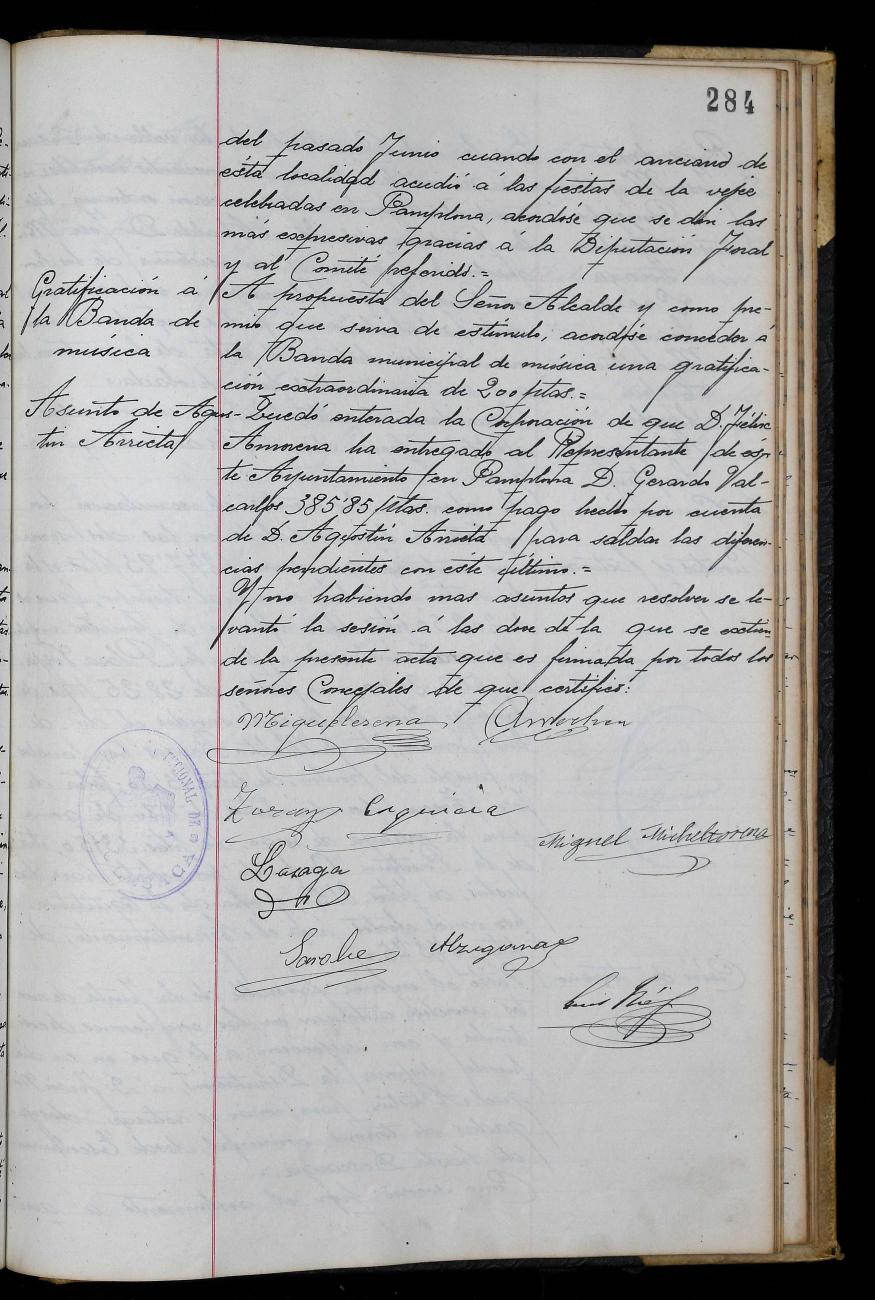 284
del pasado Junio cuando con el anciano de
ésta localidad acudió á las fiestas de la vejez
celebradas en Pamplona, acordóse que se den las
más expresivas gracias á la Diputación Foral
y al Comité referido.=
Gratificación á
la Banda de
música
A propuesta del Señor Alcalde y como pre-
mio que sirva de estímulo, acordóse conceder á
la Banda municipal de música una gratifica-
ción extraordinaria de 200 ptas.=
Asunto de Agus-
tin Arrieta
Quedó enterada la Corporación de que D. Félix
Amorena ha entregado al Representante de és-
te Ayuntamiento en Pamplona D. Gerardo Val-
carlos 385'85 ptas. como pago hecho por cuenta
de D. Agostín Arrieta para saldar las diferen-
cias pendientes con éste último.=
Y no habiendo mas asuntos que resolver se le-
vantó la sesión á las doce de la que se extien
de la presente acta que es firmada por todos los
señores Concejales de que certifico:
Miguelerena
Miguel Micheltorena
Lazaga
Saralve
Luis